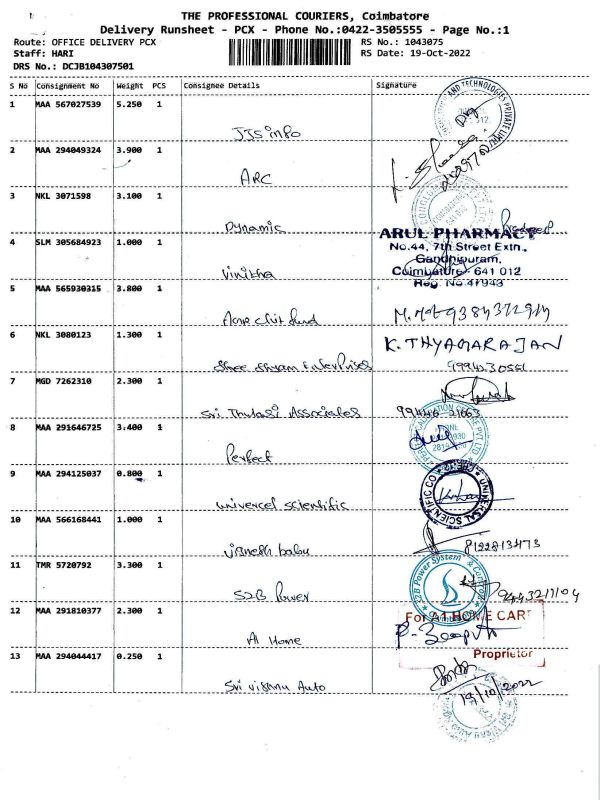 THE PROFESSIONAL COURIERS, Coimbatore
Delivery Runsheet - PCX - Phone No.:0422-3505555 - Page No.:1
Route: OFFICE DELIVERY PCX RS No.: 1043075
Staff: HARI RS Date: 19-Oct-2022
DRS No.: DCJB104307501
S No Consignment No Weight PCS Consignee Details Signature
1 MAA 567027539 5.250 1
AND TECHNOLOGIES PRIVATE
JJS info
2 MAA 294049324 3.900 1
ARC
3 NKL 3071598 3.100 1
Dynamic
ARUL PHARMACY
4 SLM 305684923 1.000 1
No.44, 7th Street Extn.,
Gandhipuram,
Coimbatore - 641 012
Vinitha
Reg. No.41943
5 MAA 565930315 3.800 1
Acme chit fund
6 NKL 3080123 1.300 1
K. THYAGARAJAN
Shree Shyam Enterprises
7 MGD 7262310 2.300 1
Sri Thulasi Associates
8 MAA 291646725 3.400 1
Perfect
9 MAA 294125037 0.800 1
UNIVERSAL SCIENTIFIC CO
univercel scientific
10 MAA 566168441 1.000 1
vignesh babu 8122813473
11 TMR 5720792 3.300 1
S2B Power System & Controls
S2B Power 9443217104
12 MAA 291810377 2.300 1
For A1 HOME CARE
A1 Home
Proprietor
13 MAA 294044417 0.250 1
Sri vishnu Auto
19/10/2022